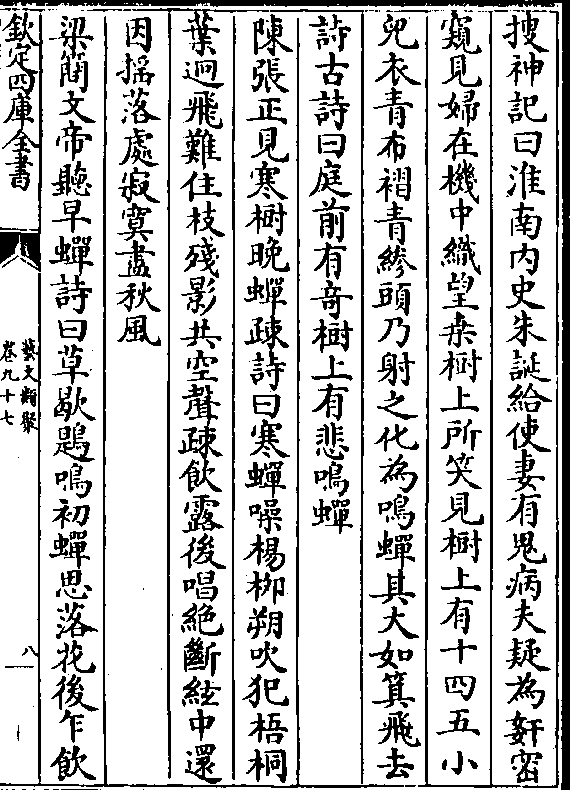 搜神記曰淮南内史朱誕給使妻有鬼病夫疑為姧密
窺見婦在機中織望桒樹上所笑見樹上有十四五小
兒衣青布褶青縿頭乃射之化為鳴蟬其大如箕飛去
詩古詩曰庭前有竒樹上有悲鳴蟬
陳張正見寒樹晚蟬疎詩曰寒蟬噪楊栁朔吹犯梧桐
葉逈飛難住枝殘影共空聲疎飲露後唱絶斷絃中還
因揺落處寂寞盡秋風
梁簡文帝聽早蟬詩曰草歇鶗鳴初蟬思落花後乍飲
欽定四庫全書
藝文類聚
卷九十七
八